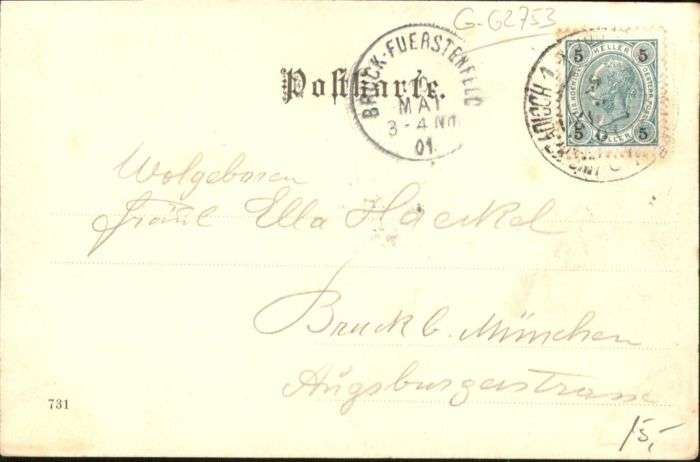 G-G2753
Postkarte.
BRUCK-FUERSTENFELD
10
MAI
3-4 NM
01
5 HELLER 5
5 HELLER 5
Wolgeboren
Fräul Ella Haeckel
Bruck b. München
Augsburgerstrasse
731
15,-